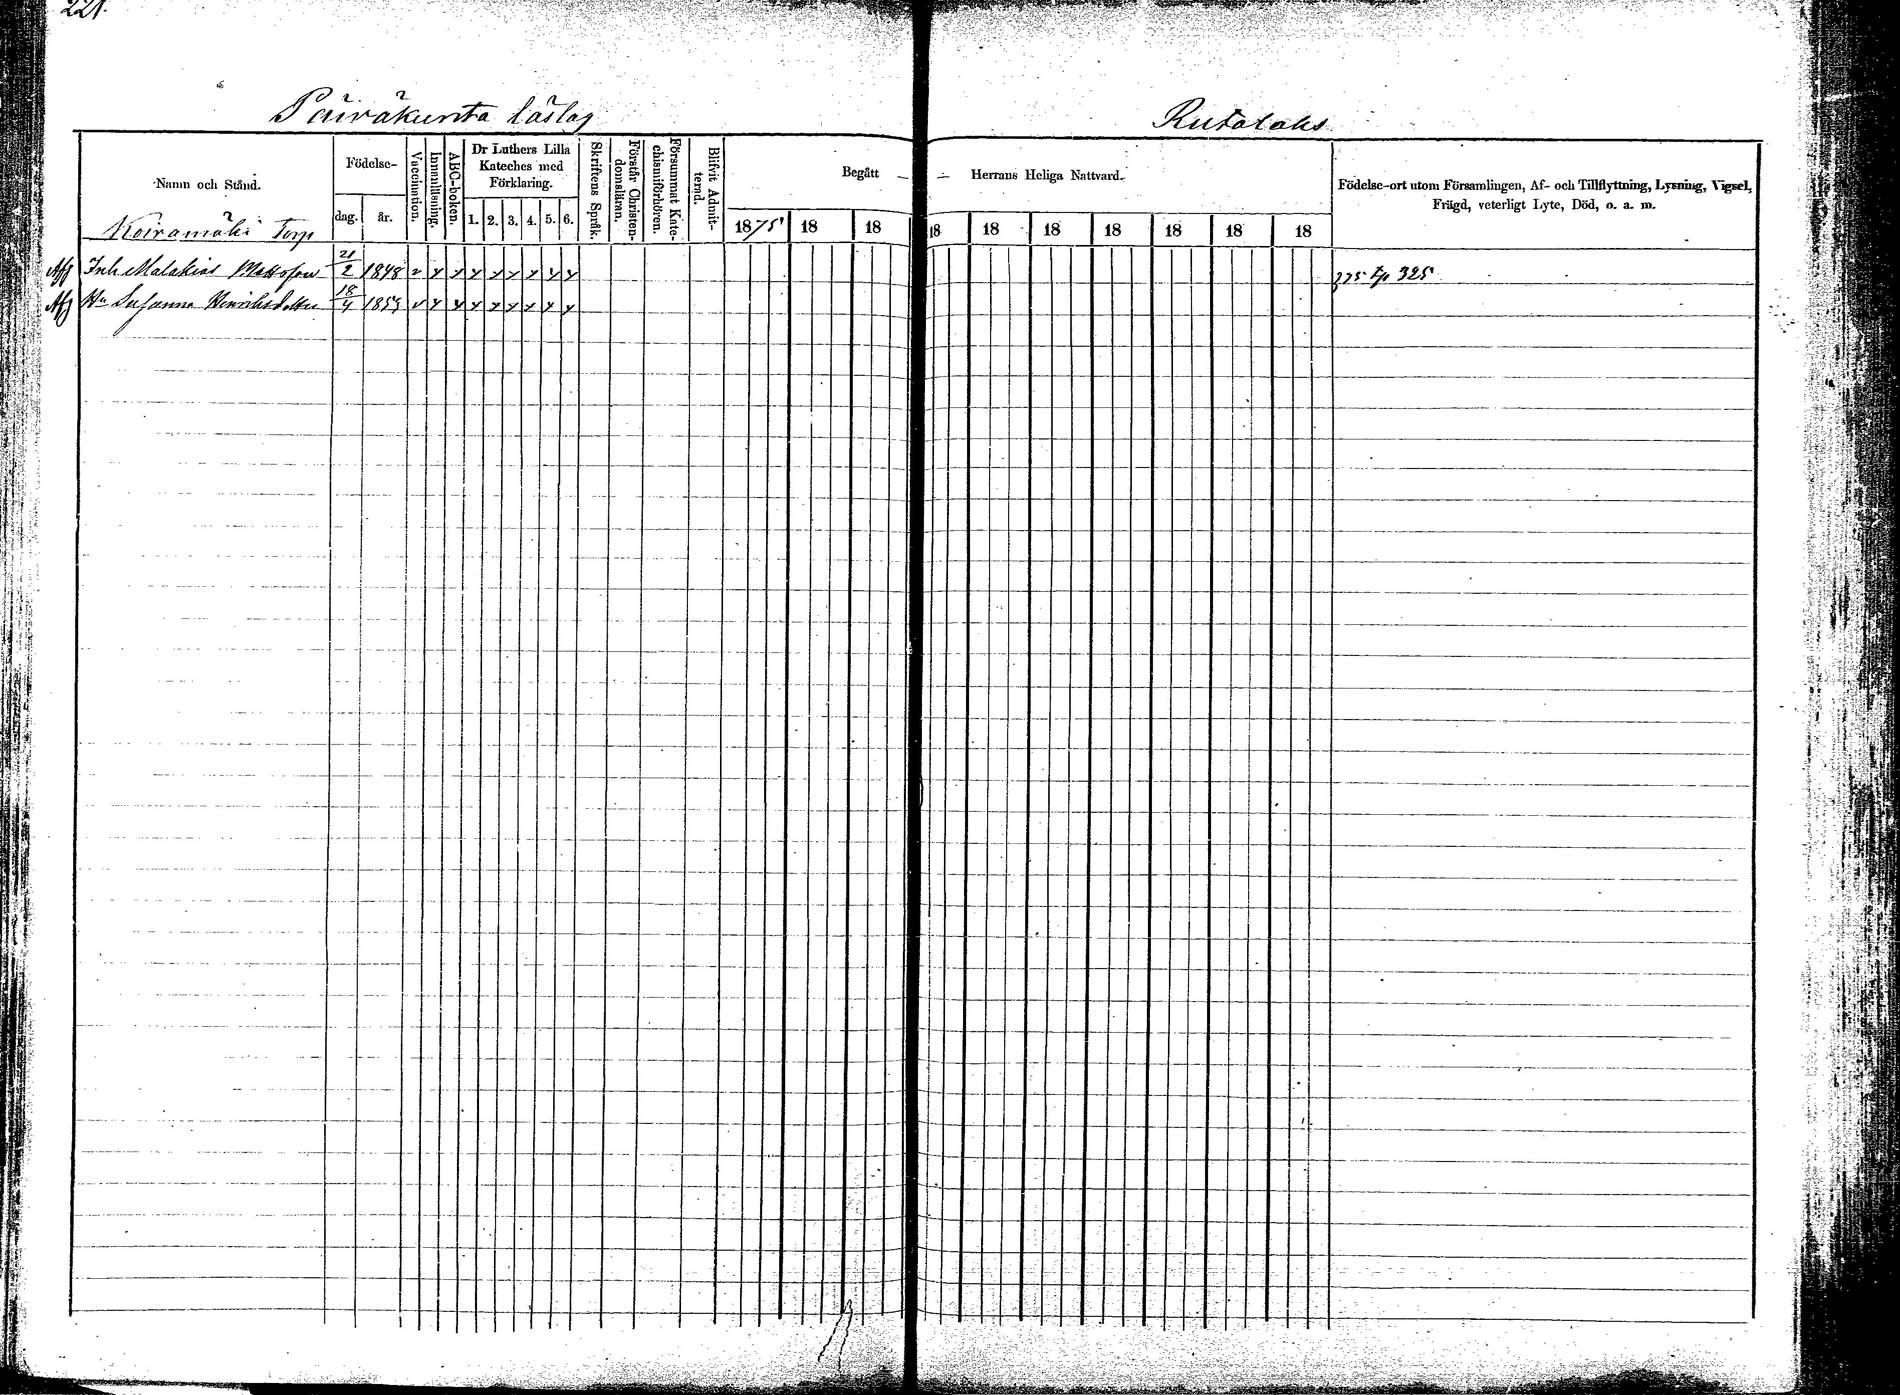 221.
Päiväkunta läslag
Rutalaks
Namn och Stånd.
Födelse-
dag.
år.
Vaccination.
Innanläsning.
ABC-boken.
Dr Luthers Lilla
Kateches med
Förklaring.
1. 2. 3. 4. 5. 6.
Skriftens Språk.
Förstår Christen-
domsläran.
Försummat Kate-
chismiförhören.
Blifvit Admit-
terad.
Begått — — Herrans Heliga Nattvard.
1875 18 18 18 18 18 18 18 18 18
Födelse-ort utom Församlingen, Af- och Tillflyttning, Lysning, Vigsel,
Frägd, veterligt Lyte, Död, o. a. m.
Koiramäki Torp
Afg Inh Malakias Mattsson 21/2 1848 375 fp 325
Afg Hu Susanna Henriksdotter 18/4 1859